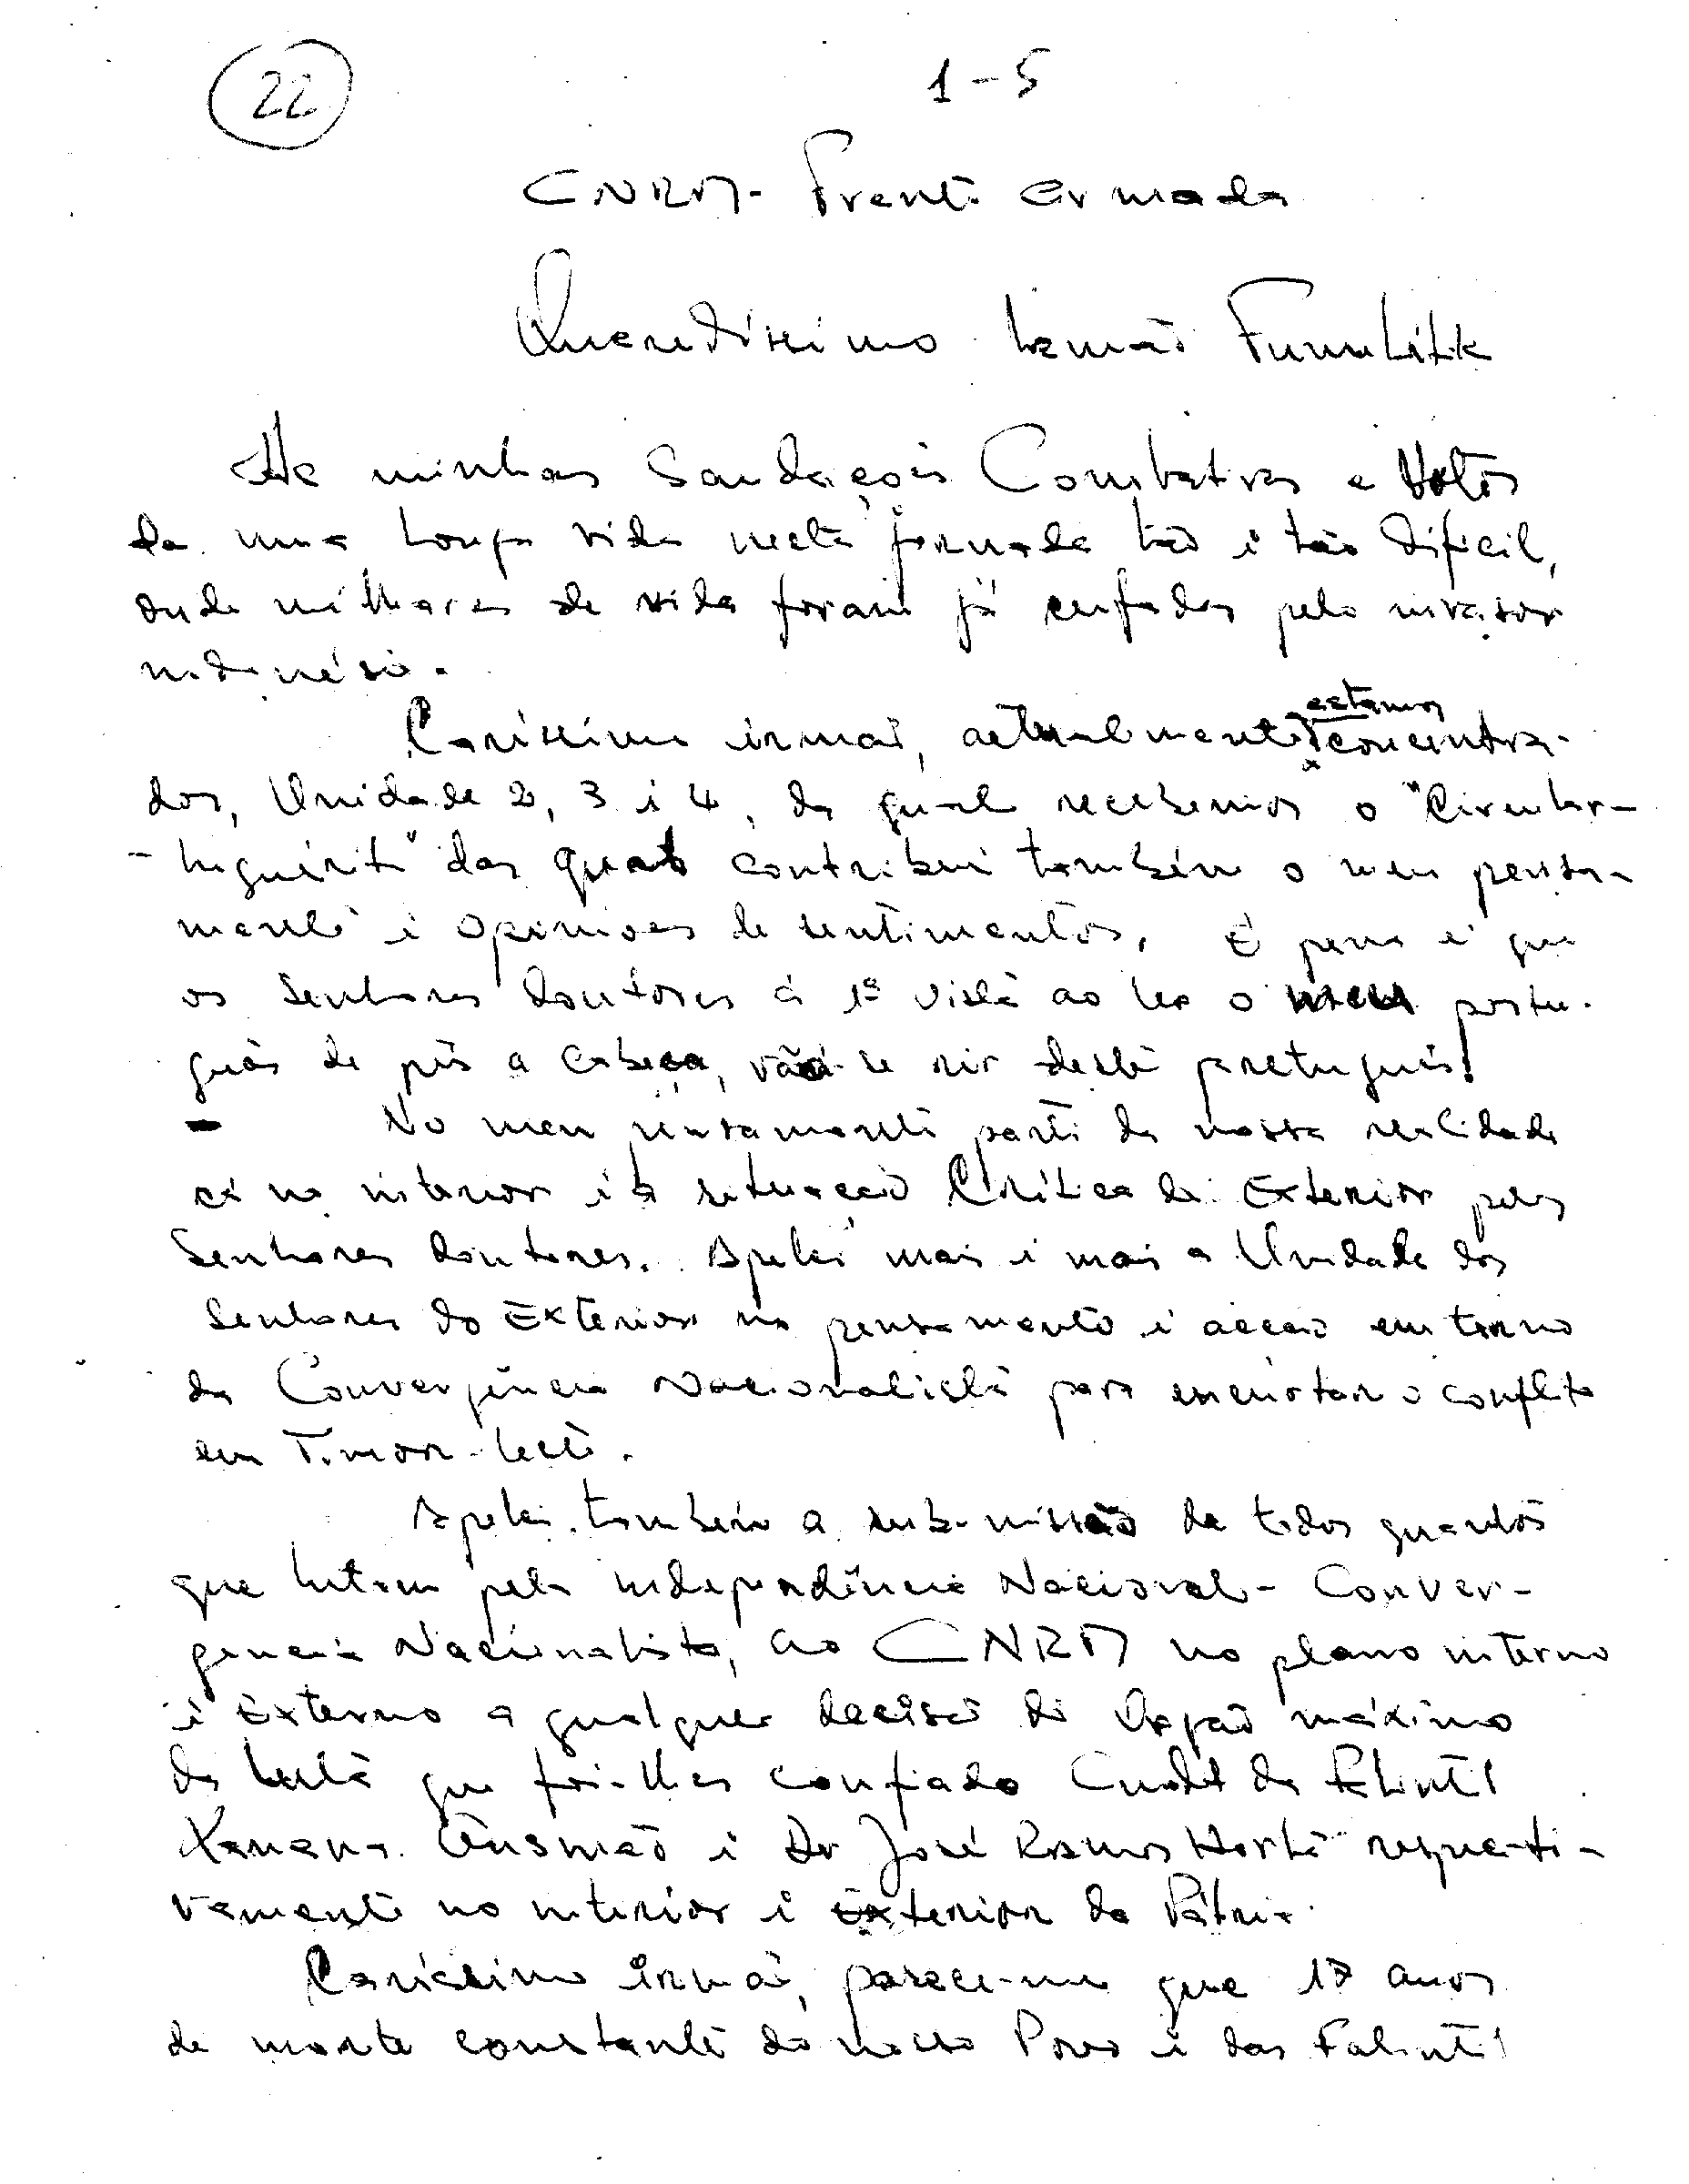 22
1-5
CNRM - Frente armada
Queridíssimo Irmão
As minhas Saudações Combativas e Votos
de uma longa vida nesta jornada tão e tão difícil,
onde milhares de vida foram já ceifadas pelo invasor
indonésio.
Caríssimo irmão, actualmente estamos concentra-
dos, Unidade 2, 3 i 4, da qual recebemos o "Circular-
- Inquérito" das quais contribui também o meu pensa-
mento i opiniões de sentimentos, é pena é que
os Senhores doutores á 1ª vista ao ler o meu portu-
guês de pés a cabeça, vão-se rir deste português!
- No meu pensamento parti da nossa realidade
cá no interior i a situação Crítica do Exterior pelos
Senhores doutores. Apelei mais i mais a Unidade dos
Senhores do Exterior no pensamento i acção em torno
da Convergência Nacionalista para encurtar o conflito
em Timor-Leste.
Apelei também a sub-missão de todos quantos
que lutam pela independência Nacional - Conver-
gencia Nacionalista, ao CNRM no plano interno
i Externo a qualquer decisão do Orgão máximo
da Luta que foi-lhes confiado Cmdt das Falintil
Xanana Gusmão i Dr José Ramos Horta respecti-
vamente no interior i Exterior da Pátria.
Caríssimo irmão, parece-me que 17 anos
de morte constante do nosso Povo i das Falintil